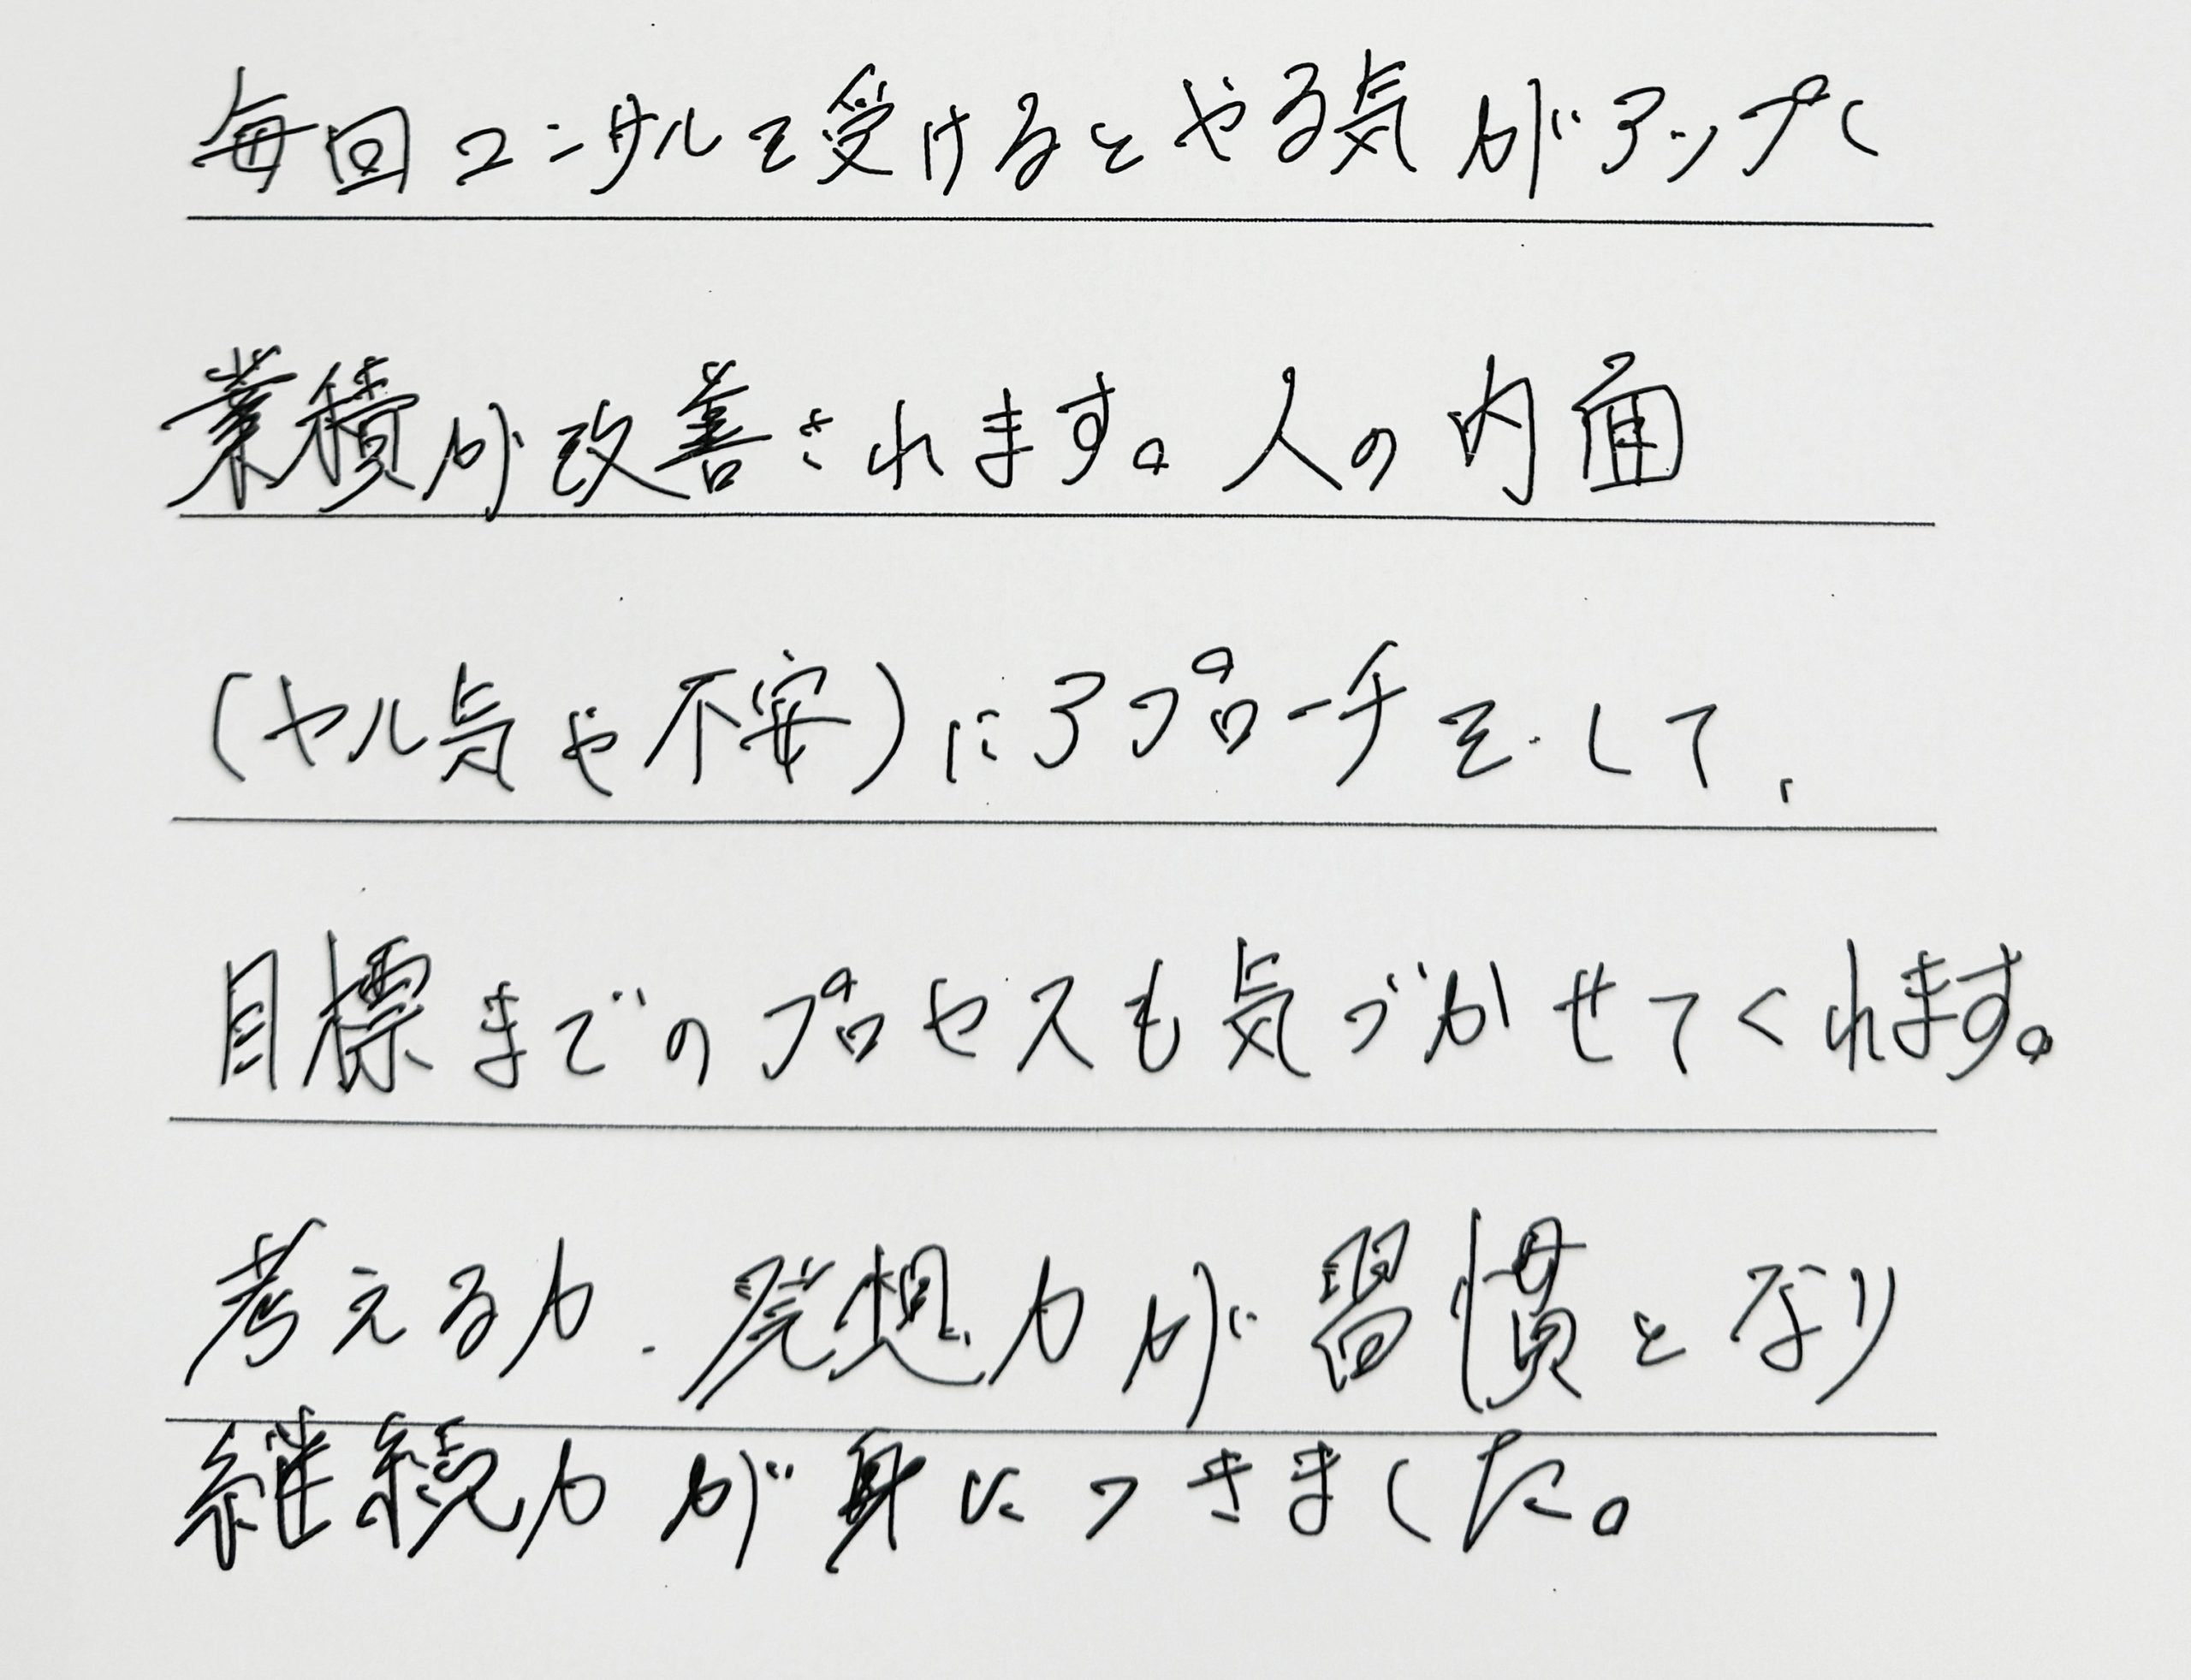 毎回コンサルを受けるとやる気がアップし
業積が改善されます。人の内面
(ヤル気や不安)にアプローチをして、
目標までのプロセスも気づかせてくれます。
考える力、発想力が習慣となり
継続力が身につきました。